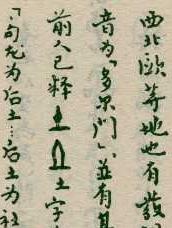 西北歐等地也有發
音为「多尔門」，並有
前人已釋土字
「句尤为后土…后土为社